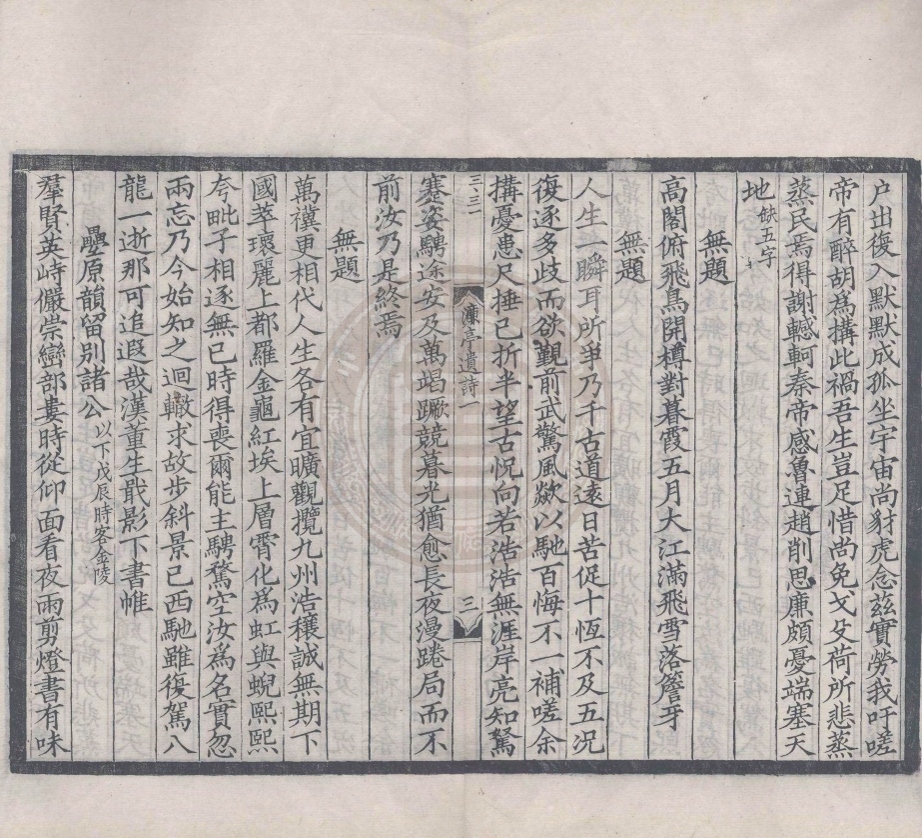 户出復入默默成孤坐宇宙尚豺虎念茲實勞我吁嗟
帝有醉胡爲搆此禍吾生豈足惜尚免戈殳荷所悲蒸
蒸民焉得謝轗軻秦帝感魯連趙削思廉頗憂端塞天
地缺五字
無題
高閣俯飛鳥開樽對暮霞五月大江滿飛雪落簷牙
無題
人生一瞬耳所爭乃千古道遠日苦促十恆不及五況
復逐多歧而欲覲前武驚風欻以馳百悔不一補嗟余
搆憂患尺捶已折半望古怳向若浩浩無涯岸亮知駑
三、三一
濂亭遺詩一
三
蹇姿騁途安及萬竭蹶競暮光猶愈長夜漫踡局而不
前汝乃是終焉
無題
萬禩更相代人生各有宜曠觀攬九州浩穰誠無期下
國萃瓌麗上都羅金龜紅埃上層霄化爲虹與蜺熙熙
夸毗子相逐無已時得喪爾能主騁騖空汝爲名實忽
兩忘乃今始知之迴轍求故步斜景已西馳雖復駕八
龍一逝那可追遐哉漢董生戢影下書帷
疊原韻留別諸公以下戊辰時客金陵
羣賢英峙儼崇巒部婁時從仰面看夜雨剪燈書有味